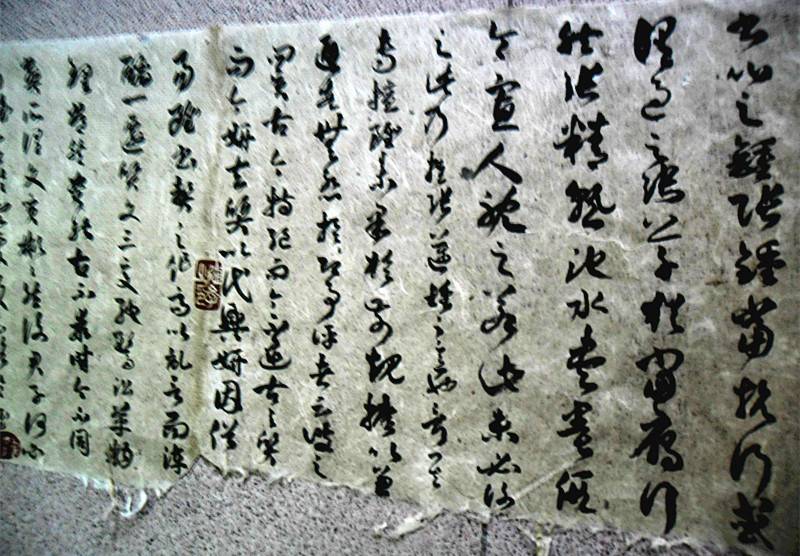 書比之鍾張鍾當抗行或
謂過之張草猶當雁行
然張精熟池水盡墨假
令寡人耽之若此未必謝
之此乃推張邁鍾之意也考其
專擅雖未果於前規摭以兼
通故無慚於即事評者云彼之
四賢古今特絕而今不逮古古質
而今妍夫質以代興妍因俗
易雖書契之作適以記言而淳
醨一遷質文三變馳騖沿革物
理常然貴能古不乖時今不同
弊所謂文質彬彬然後君子何必